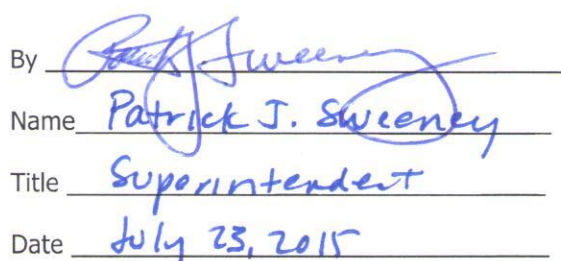 By Patrick J. Sweeney
Name Patrick J. Sweeney
Title Superintendent
Date July 23, 2015